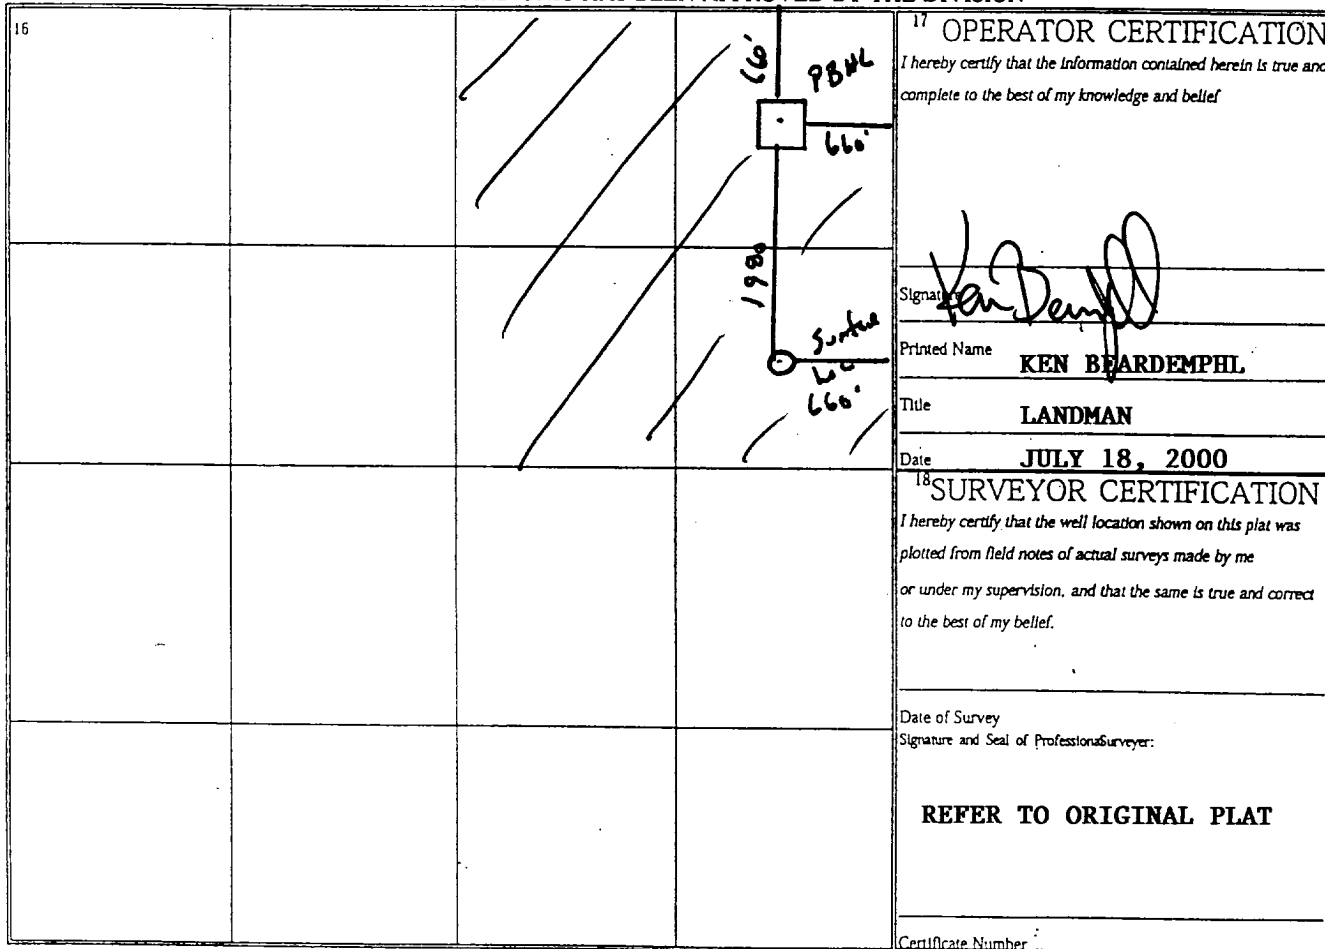 16
66'
PBHL
660'
1980
Surface
Loc
660'
17 OPERATOR CERTIFICATION
I hereby certify that the information contained herein is true and
complete to the best of my knowledge and belief
Signature
Printed Name KEN BEARDEMPHL
Title LANDMAN
Date JULY 18, 2000
18 SURVEYOR CERTIFICATION
I hereby certify that the well location shown on this plat was
plotted from field notes of actual surveys made by me
or under my supervision, and that the same is true and correct
to the best of my belief.
Date of Survey
Signature and Seal of ProfessionalSurveyer:
REFER TO ORIGINAL PLAT
Certificate Number